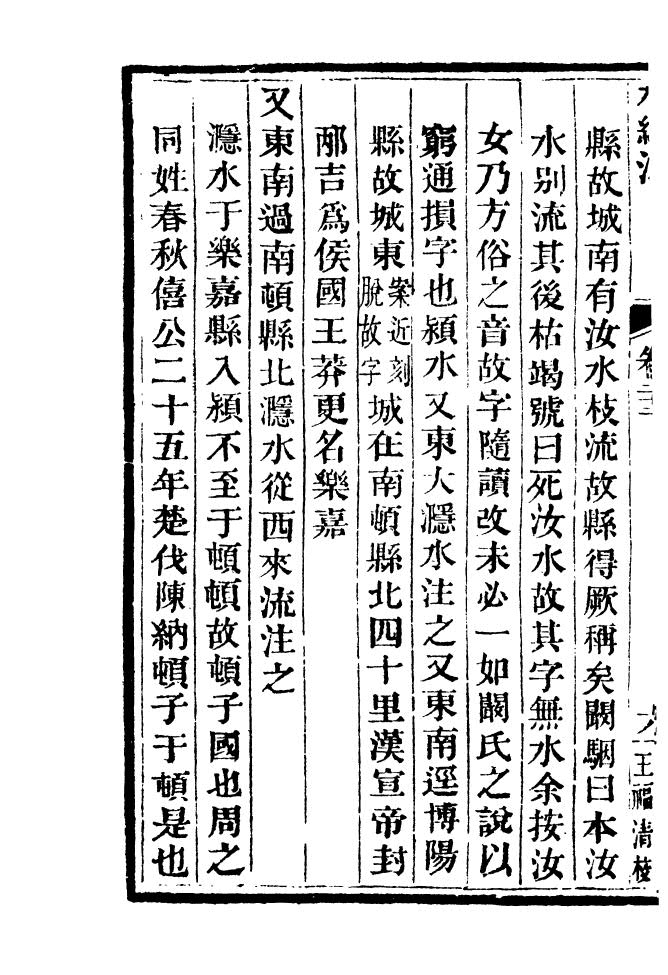 縣故城南有汝水枝流故縣得厥稱矣闞駰曰本汝
水别流其後枯竭號曰死汝水故其字無水余按汝
女乃方俗之音故字隨讀改未必一如闞氏之說以
窮通損字也潁水又東大㶏水注之又東南逕博陽
縣故城東案近刻脫故字城在南頓縣北四十里漢宣帝封
邴吉爲侯國王莽更名樂嘉
又東南過南頓縣北㶏水從西來流注之
㶏水于樂嘉縣入潁不至于頓頓故頓子國也周之
同姓春秋僖公二十五年楚伐陳納頓子于頓是也
卷二十二
王福清校